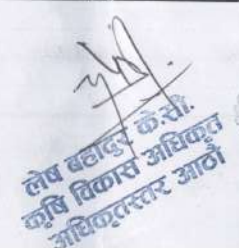 लेष बहादुर के.सी.
कृषि विकास अधिकृत
अधिकृतस्तर आठौं